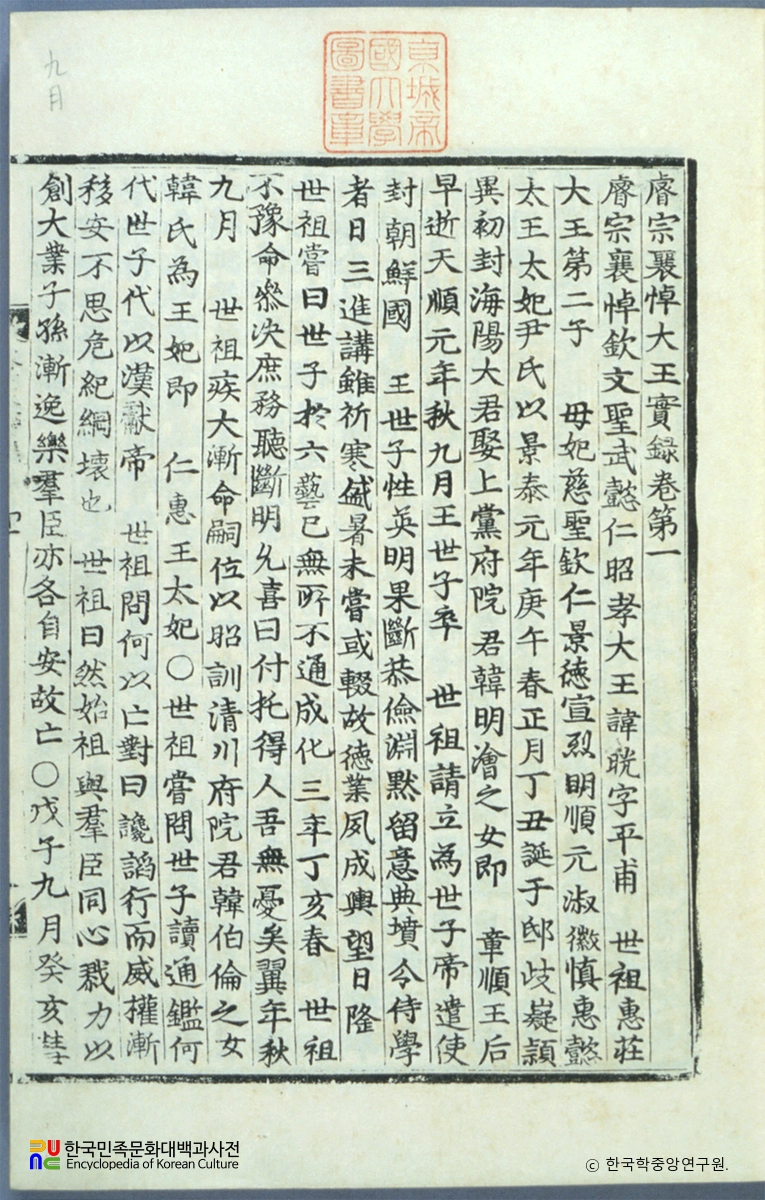 九月
京城帝
國大學
圖書章
睿宗襄悼大王實錄卷第一
睿宗襄悼欽文聖武懿仁昭孝大王諱晄字平甫 世祖惠莊
大王第二子 母妃慈聖欽仁景德宣烈明順元淑徽愼惠懿
太王太妃尹氏以景泰元年庚午春正月丁丑誕于邸歧嶷穎
異初封海陽大君娶上黨府院君韓明澮之女即 章順王后
早逝天順元年秋九月王世子卒 世祖請立為世子帝遣使
封朝鮮國 王世子性英明果斷恭儉淵默留意典墳令侍學
者日三進講雖祈寒盛暑未嘗或輟故德業夙成輿望日隆
世祖嘗曰世子於六藝已無所不通成化三年丁亥春 世祖
不豫命叅決庶務聽斷明允喜曰付托得人吾無憂矣翼年秋
九月 世祖疾大漸命嗣位以昭訓清川府院君韓伯倫之女
韓氏為王妃即 仁惠王太妃○世祖嘗問世子讀通鑑何
代世子代以漢獻帝 世祖問何以亡對曰讒謟行而威權漸
移安不思危紀綱壞也 世祖曰然始祖與羣臣同心戮力以
創大業子孫漸逸樂羣臣亦各自安故亡○戊子九月癸亥彗
한국민족문화대백과사전
Encyclopedia of Korean Culture
© 한국학중앙연구원.